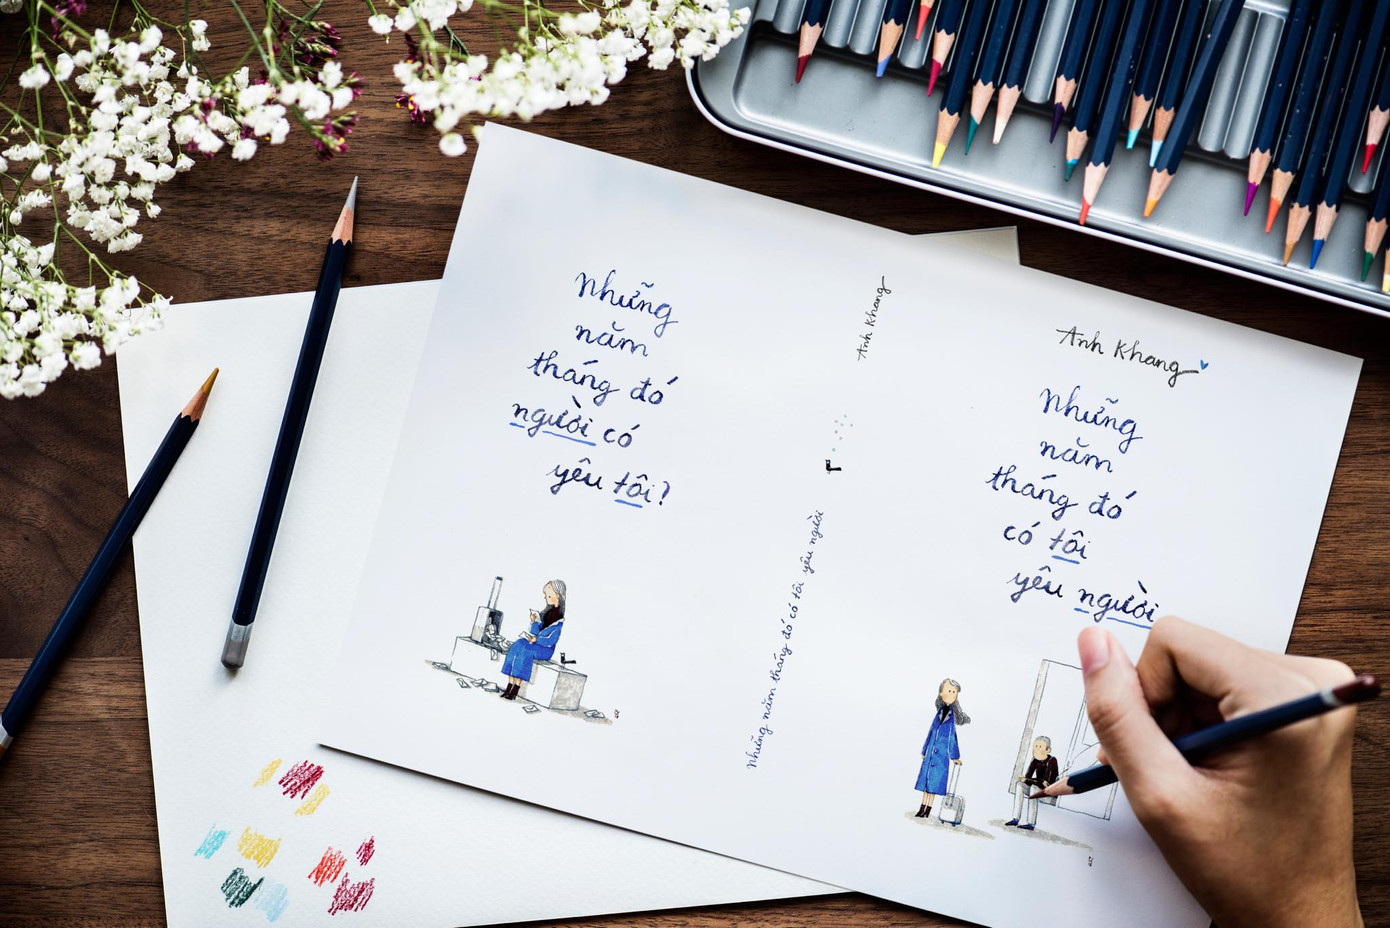 Những
năm
tháng đó
người có
yêu tôi?
Anh Khang
Những năm tháng đó có tôi yêu người
Anh Khang
Những
năm
tháng đó
có tôi
yêu người